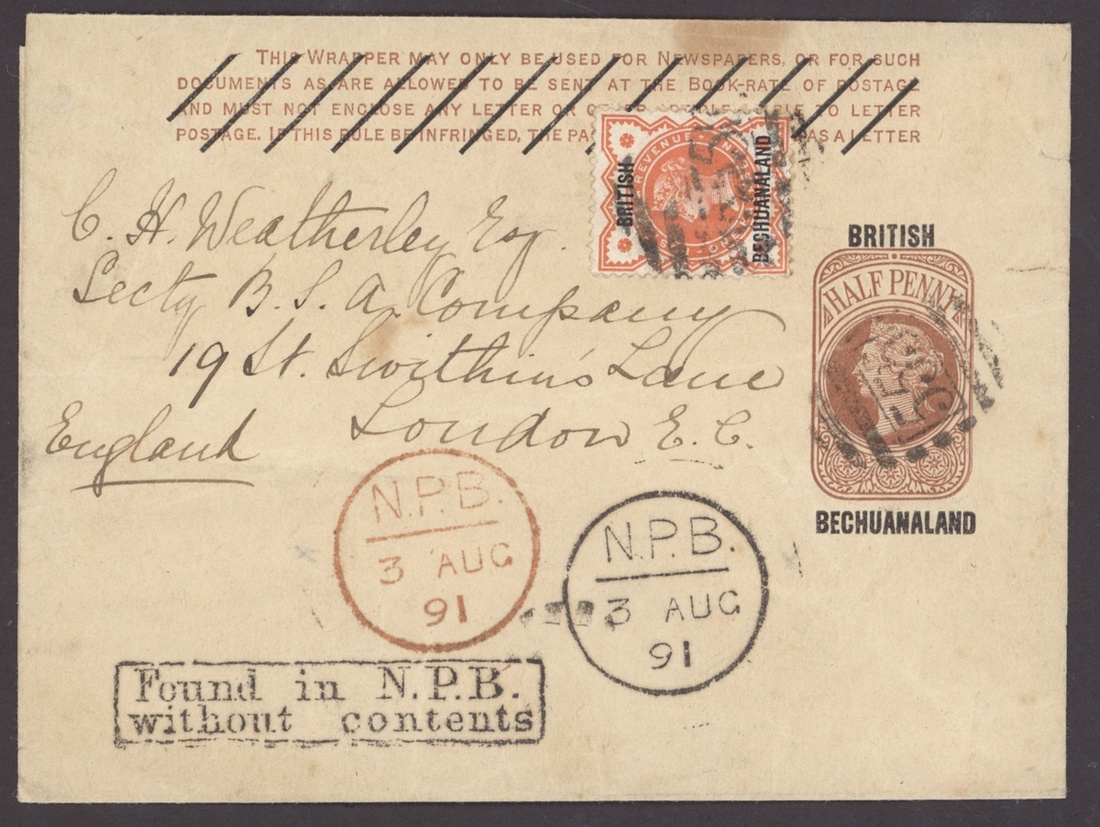 THIS WRAPPER MAY ONLY BE USED FOR NEWSPAPERS, OR FOR SUCH
DOCUMENTS AS ARE ALLOWED TO BE SENT AT THE BOOK-RATE OF POSTAGE
AND MUST NOT ENCLOSE ANY LETTER OR TO LETTER
POSTAGE. IF THIS RULE BE INFRINGED, THE AS A LETTER
BRITISH
BECHUANALAND
REVENUE
BRITISH
HALF PENNY
BECHUANALAND
C. H. Weatherley Esq.
Secty B. S. A. Company
19 St. Swithin's Lane
London E. C.
England
N.P.B.
3 AUG
91
N.P.B.
3 AUG
91
Found in N.P.B.
without contents